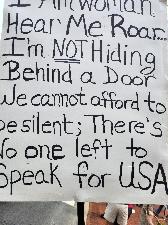 I Am Woman
Hear Me Roar...
I'm NOT Hiding
Behind a Door
We cannot afford to
be silent; There's
No one left to
Speak for USA